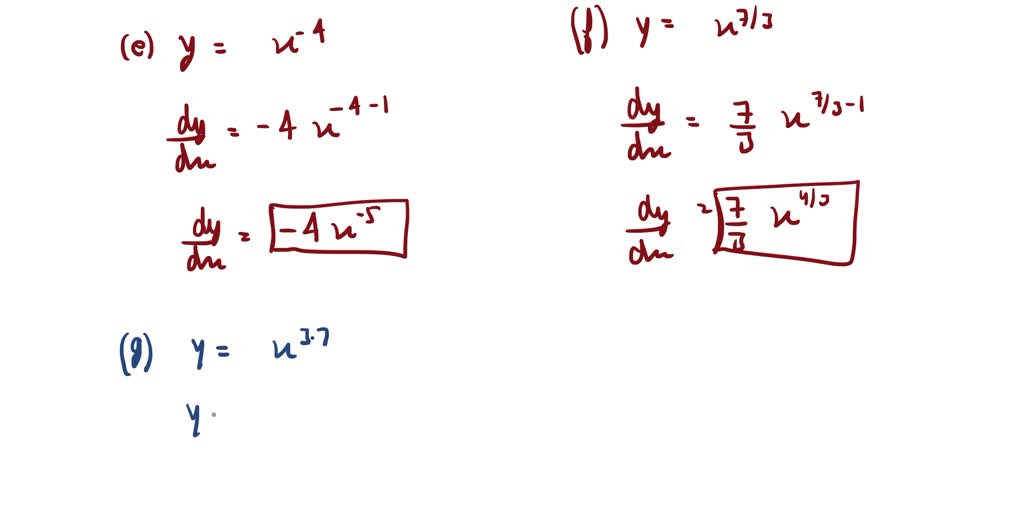 (e) y = x^-4
dy/dx = -4 x^-4-1
dy/dx = -4 x^-5
(f) y = x^7/3
dy/dx = 7/3 x^7/3-1
dy/dx = 7/3 x^4/3
(g) y = x^3.7
y